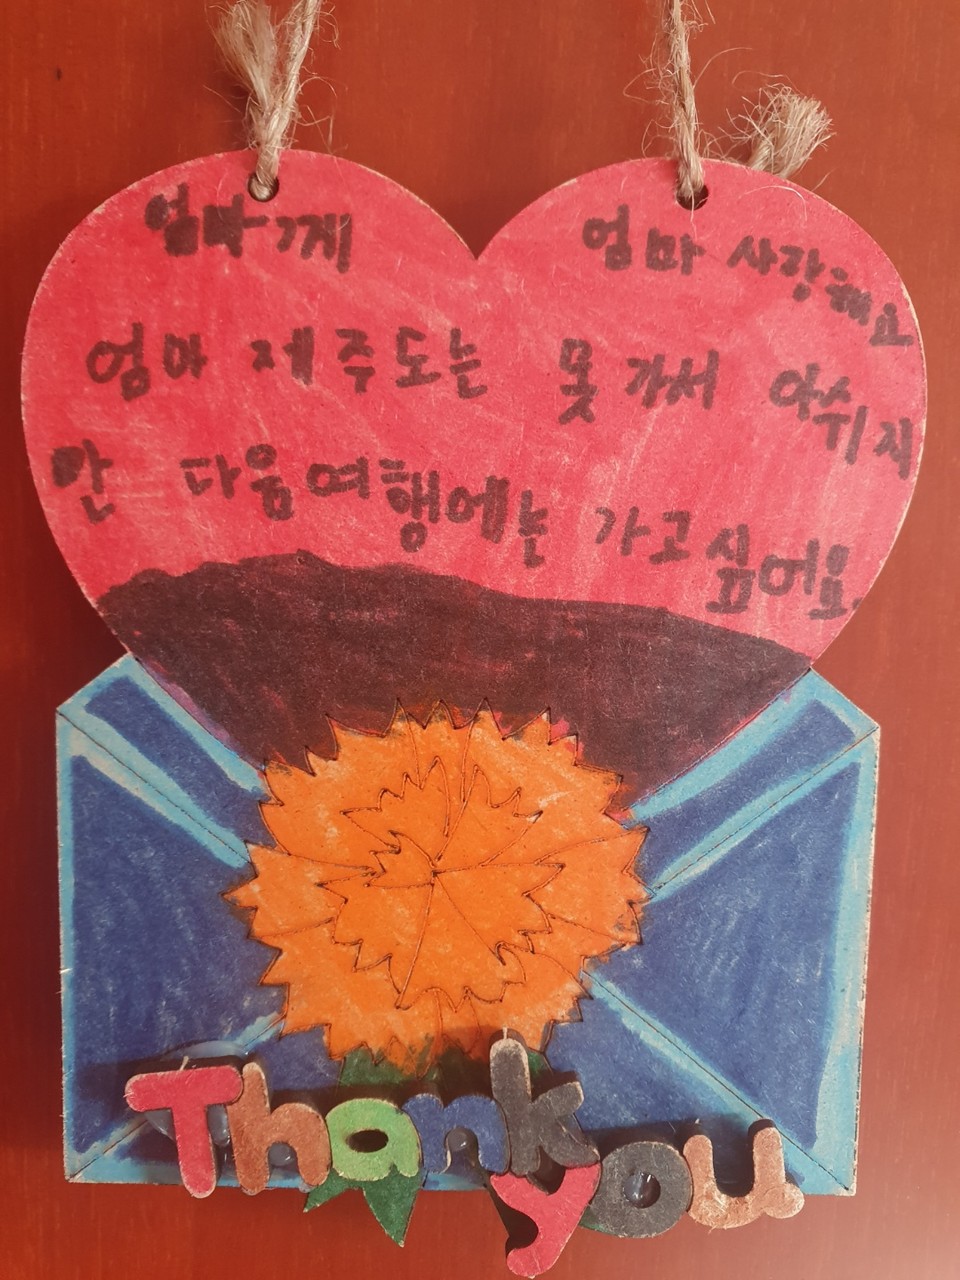 엄마께 엄마 사랑해요
엄마 제주도는 못가서 아쉬지
만 다음여행에는 가고싶어요.
Thank
you